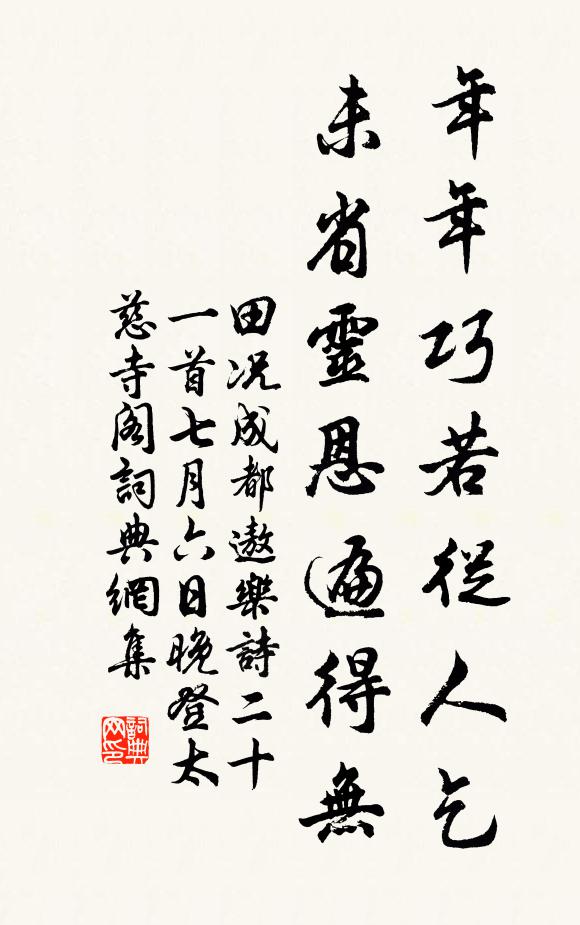 年年巧若從人乞
未省靈恩遍得無
田況成都遨樂詩二十
一首七月六日晚登太
慈寺閣詞典網集
詞典
网印